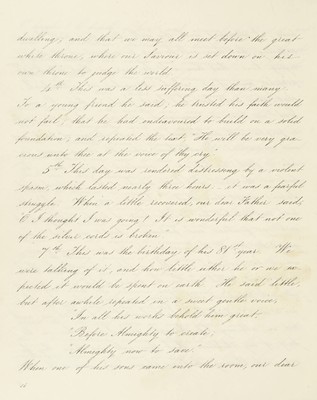 dwelling; and that we may all meet before "the great
white throne, where our Saviour is set down on his
own throne to judge the world.
4th This was a less suffering day than many.
To a young friend he said, he trusted his faith would
not fail; that he had endeavoured to build on a solid
foundation; and repeated the text "He will be very gra-
cious unto thee at the voice of thy cry."
5th This day was rendered distressing by a violent
spasm, which lasted nearly three hours, it was a fearful
struggle. When a little recovered, our dear Father said,
"O I thought I was going! It is wonderful that not one
of the silver cords is broken"
7th This was the birthday of his 81st year. We
were talking of it, and how little either he or we ex
pected it would be spent on earth. He said little,
but after awhile repeated in a sweet gentle voice;
"In all his works behold him great,
"Before Almighty to create,
"Almighty now to save."
When one of his sons came into the room, our dear